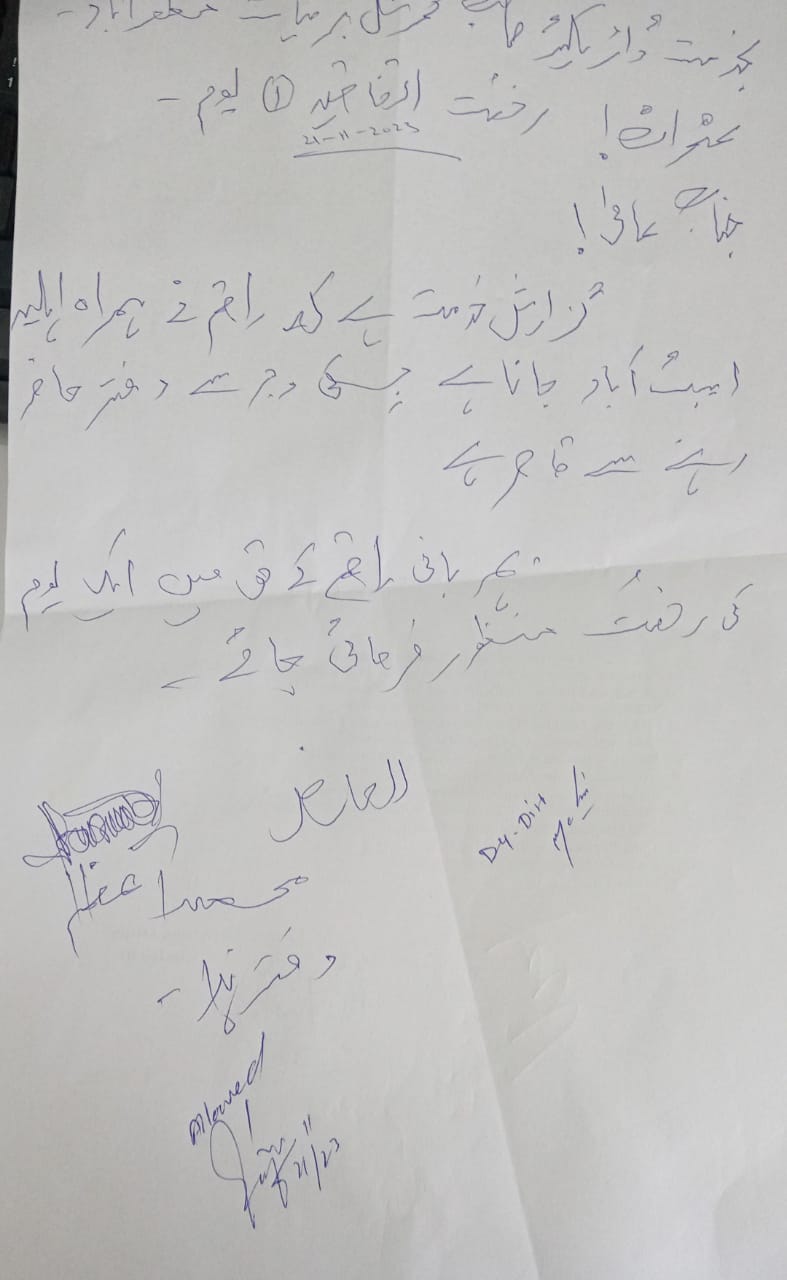 بخدمت ڈائریکٹر صاحب ہرسل بر سیات مظفرآباد۔
عنوان! رخصت اتفاقیہ ① یوم۔
21-11-2023
جناب عالی!
گزارش خدمت ہے کہ راقم نے ہمراہ اہلیہ
ایبٹ آباد جانا ہے جسکی وجہ سے دفتر حاضر
رہنے سے قاصر ہے
مہربانی راقم کے حق میں ایک یوم
کی رخصت منظور فرمائی جائے۔
العارض
محمد اعظم
دفتر ہذا۔
Dy-Dir
Allowed
21/11/23